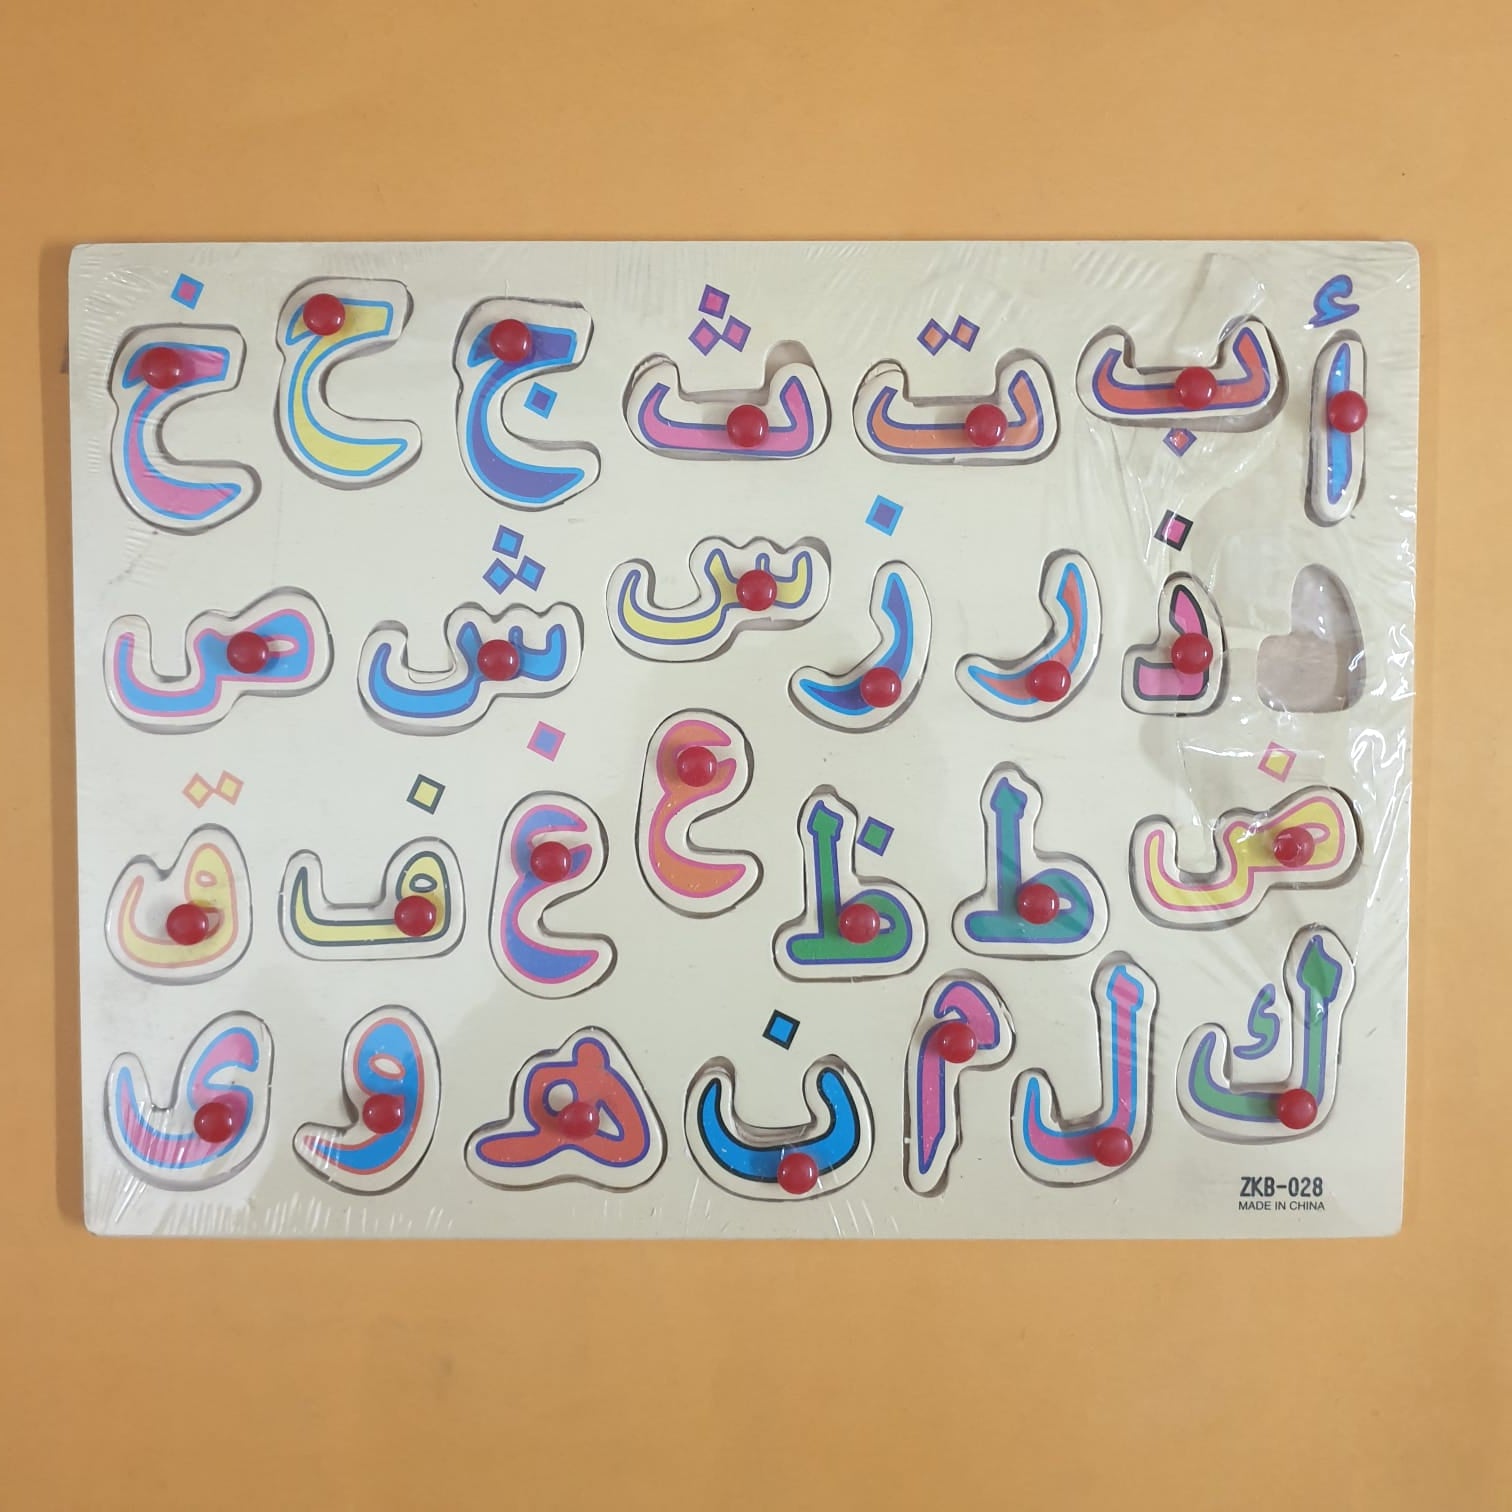 أ ب ت ث ج ح خ
ذ ر ز س ش ص
ض ط ظ ع غ ف ق
ك ل م ن ه و ى
ZKB-028
MADE IN CHINA